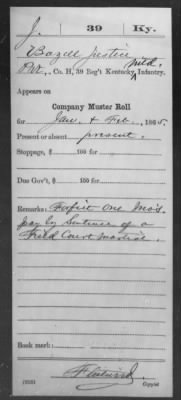 J. 39 Ky.
Bazell Justice
Pvt., Co. H, 39 Reg't Kentucky Mtd. Infantry.
Appears on
Company Muster Roll
for Jan. & Feb., 1865.
Present or absent present.
Stoppage, $ 100 for
Due Gov't, $ 100 for
Remarks: Forfeit One Mo's
pay by Sentence of a
Field Court Martial.
Book mark:
Copyist